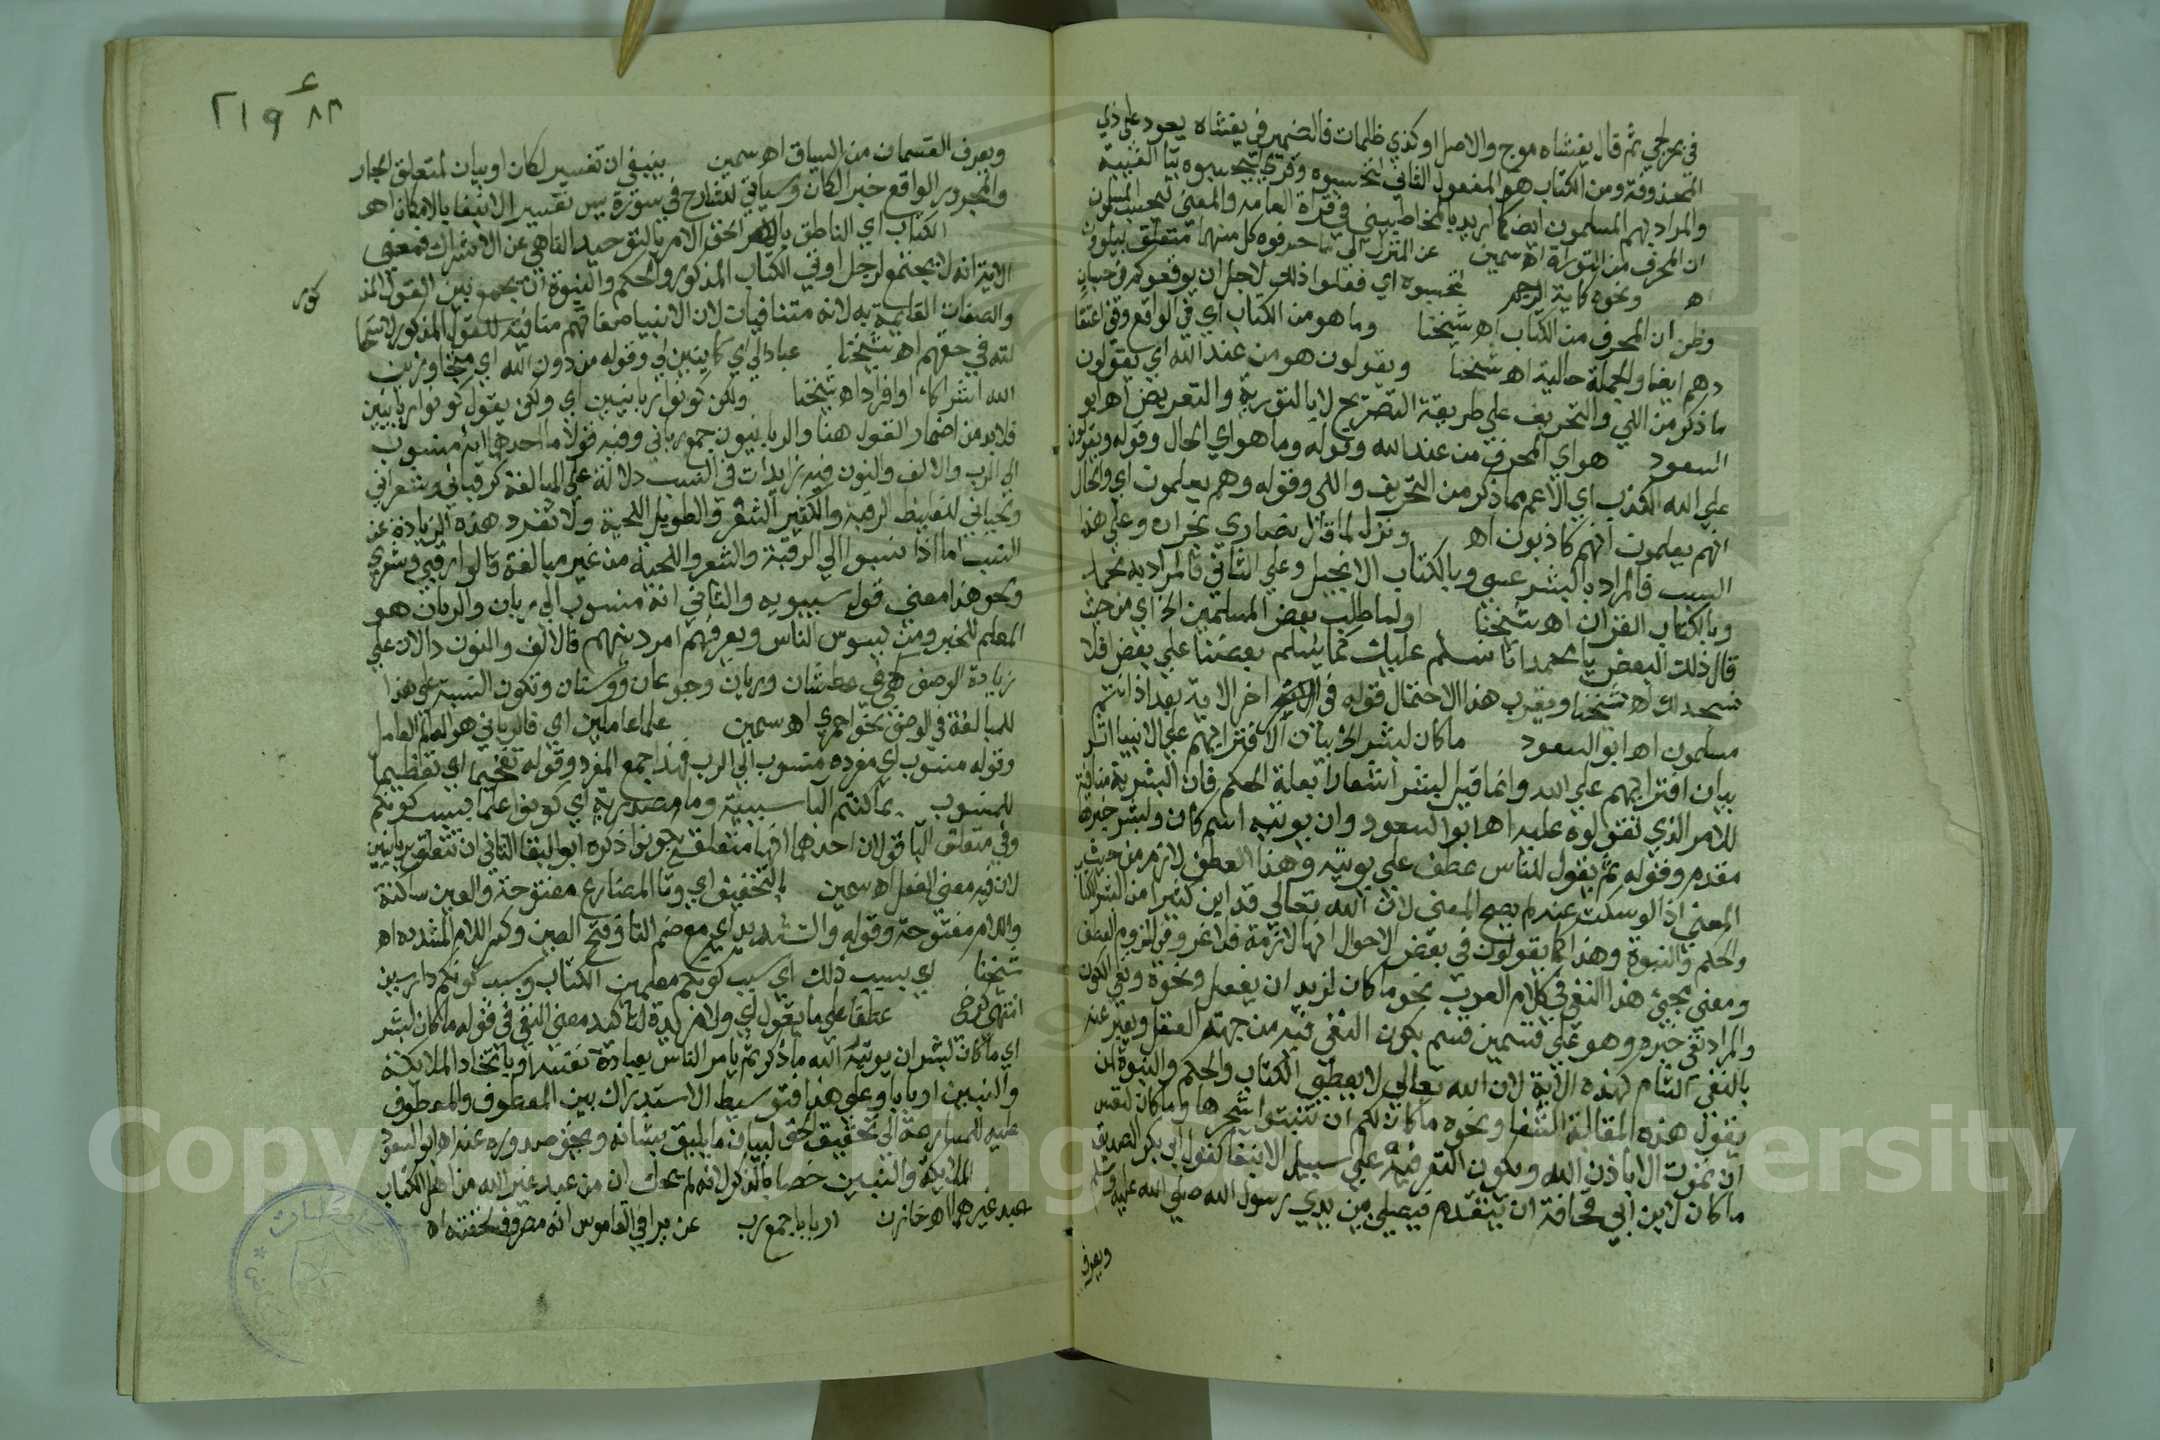 في بحر لجي ثم قال يغشاه موج والاصل او كذي ظلمات فالضمير في يغشاه يعود على ذي
المحذوفة ومن الكتاب هو المفعول الثاني لتحسبوه وقرئ ليحسبوه بيا الغيبة
والمراد بهم المسلمون ايضا كما اريد بالمخاطبين في قراة العامة والمعنى ليحسب المسلمون
ان المحرف من التوراة اه سمين عن المنزل الى ما حرفوه كل منهما متعلق بيلوون
اه ونحوه كاية الرجم لتحسبوه اي ففعلوا ذلك لاجل ان يوقعوكم في حسبان
وظن ان المحرف من الكتاب اه شيخنا وما هو من الكتاب اي في الواقع وفي اعتقا
دهم ايضا والجملة حالية اه شيخنا ويقولون هو من عند الله اي يقولون
ما ذكر من اللي والتحريف على طريقة التصريح لا بالتورية والتعريض اه ابو
السعود هو اي المحرف من عند الله وقوله وما هو اي الحال وقوله ويقولون
على الله الكذب اي الاعم مما ذكر من التحريف واللي وقوله وهم يعلمون اي والحال
انهم يعلمون انهم كاذبون اه ونزل لما قال نصارى نجران وعلى هذا
السبب فالمراد بالبشر عيسى وبالكتاب الانجيل وعلى الثاني فالمراد به محمد
وبالكتاب القران اه شيخنا اولما طلب بعض المسلمين الخ اي من حيث
قال ذلك البعض يا محمد انا نسلم عليك كما يسلم بعضنا على بعض افلا
نسجد لك اه شيخنا ويقرب هذا الاحتمال قوله في اخر الاية بعد اذ انتم
مسلمون اه ابو السعود ما كان لبشر الخ بيان لافترايهم على الانبيا اثر
بيان افترايهم على الله وانما قيل لبشر اشعارا بعلة الحكم فان البشرية منافية
للامر الذي تقولوه عليه اه ابو السعود وان يوتيه اسم كان ولبشر خبرها
مقدم وقوله ثم يقول للناس عطف على يوتيه وهذا العطف لازم من حيث
المعنى اذ لو سكت عنه لم يصح المعنى لان الله تعالى قد اتى كثيرا من البشر الكتاب
والحكم والنبوة وهذا كما يقولون في بعض الاحوال انها لازمة فلا غرو في لزوم العطف
ومعنى مجيء هذا النفي في كلام العرب نحو ما كان لزيد ان يفعل ونحوه ونفي الكون
والمراد نفي خبره وهو على قسمين قسم يكون النفي فيه من جهة العقل ويعبر عنه
بالنفي التام كهذه الاية لان الله تعالى لا يعطي الكتاب والحكم والنبوة لمن
يقول هذه المقالة الشنعا ونحوه ما كان لكم ان تنبتوا شجرها وما كان لنفس
ان تموت الا باذن الله ويكون النفي فيه على سبيل الانبغا كقول ابي بكر الصديق
ما كان لابن ابي قحافة ان يتقدم فيصلي بين يدي رسول الله صلى الله عليه وسلم
ويعرف
٢١٩
ويعرف القسمان من السياق اه سمين ينبغي ان تفسير لكان او بيان لمتعلق الجار
والمجرور الواقع خبر الكان وسياتي للشارح في سورة يس تفسير الانبغا بالامكان اه
الكتاب اي الناطق بالحق الامر بالتوحيد الناهي عن الاشراك فمعنى
الاية انه لا يجتمع لرجل اوتي الكتاب المذكور والحكم والنبوة ان يجمع بين القول المذ
كور
والصفات القايمة به لانه متنافيات لان الانبيا صفاتهم منافية للقول المذكور لاستحا
لته في حقهم اه شيخنا عبادا لي اي كاينين لي وقوله من دون الله اي متجاوزين
الله اشراكا او افرادا اه شيخنا ولكن كونوا ربانيين اي ولكن يقول كونوا ربانيين
فلا بد من اضمار القول هنا والربانيون جمع رباني وفيه قولان احدهما انه منسوب
الى الرب والالف والنون فيه زايدات في النسب دلالة على المبالغة كرقباني وشعراني
ولحياني للغليظ الرقبة والكثير الشعر والطويل اللحية ولا تفرد هذه الزيادة عن
النسب اما اذا نسبوا الى الرقبة والشعر واللحية من غير مبالغة قالوا رقبي وشعري
ونحو هذا معنى قول سيبويه والثاني انه منسوب الى ربان والربان هو
المعلم للخير ومن يسوس الناس ويعرفهم امر دينهم فالالف والنون دالان على
زيادة الوصف كهي في عطشان وريان وجوعان ووسنان وتكون النسبة على هذا
للمبالغة في الوصف نحو احمري اه سمين علما عاملين اي فالرباني هو العالم العامل
وقوله منسوب اي مفرده منسوب الى الرب فهذا جمع المفرد وقوله تفخيما اي تعظيما
للمنسوب بما كنتم البا سببية وما مصدرية اي كونوا علما بسبب كونكم
وفي متعلق البا قولان احدهما انها متعلقة بكونوا ذكره ابو البقا الثاني ان تتعلق بربانيين
لان فيه معنى الفعل اه سمين بالتخفيف اي وتا المضارع مفتوحة والعين ساكنة
واللام مفتوحة وقوله والتشديد اي مع ضم التا وفتح العين وكسر اللام المشددة اه
شيخنا اي بسبب ذلك اي سبب كونكم معلمين الكتاب وبسبب كونكم دارسين
انتهى كرخي عطفا على ما يقول اي ولا مزيدة لتاكيد معنى النفي في قوله ما كان لبشر
اي ما كان لبشر ان يوتيه الله ما ذكر ثم يامر الناس بعبادة نفسه او باتخاذ الملايكة
والنبيين اربابا وعلى هذا فتوسيط الاستدراك بين المعطوف والمعطوف
عليه للمسارعة الى تحقيق الحق لبيان ما يليق بشانه ويحق صدوره عنه اه ابو السعود
الملايكة والنبيين خصا بالذكر لانه لم يحك ان من عبد غير الله من اهل الكتاب
عبد غيرهما اه خازن اربابا جمع رب عزير في القاموس انه مصروف لخفته اه
Copyright © King Saud University